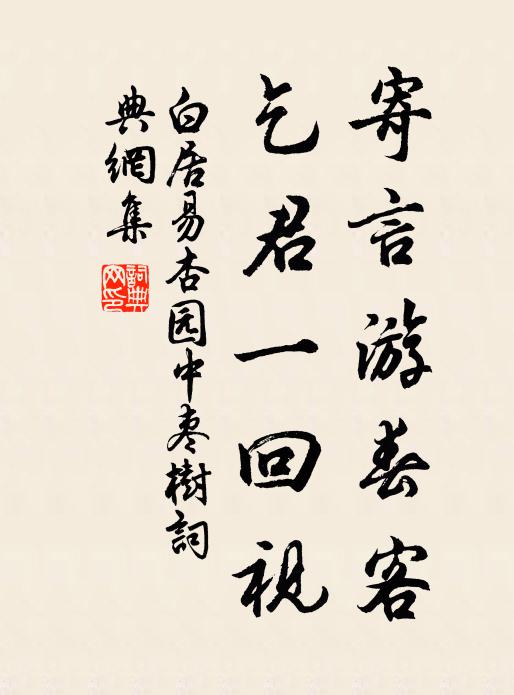 寄言游春客
乞君一回視
白居易杏园中枣樹詞
典網集
詞典
网印